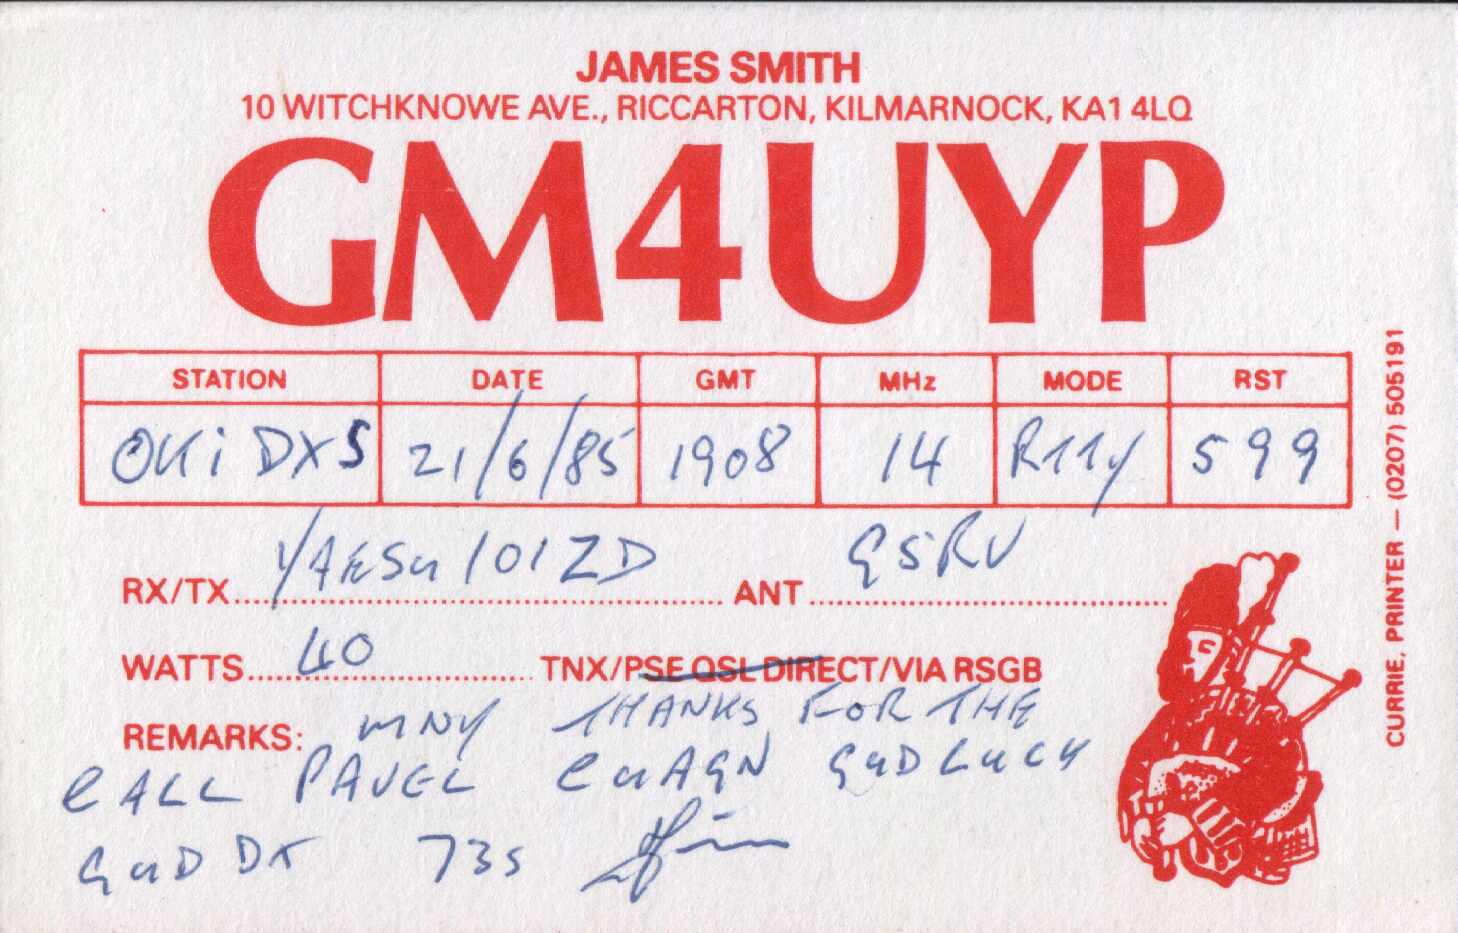 JAMES SMITH
10 WITCHKNOWE AVE., RICCARTON, KILMARNOCK, KA1 4LQ
GM4UYP
STATION DATE GMT MHz MODE RST
OKiDXS 21/6/85 1908 14 RTTY 599
RX/TX YAESU 101ZD ANT G5RV
WATTS 40 TNX/PSE QSL DIRECT/VIA RSGB
REMARKS: MNY THANKS FOR THE
CALL PAVEL CUAGN GUD LUCK
GUD DX 73s Jim
CURRIE, PRINTER — (0207) 505191